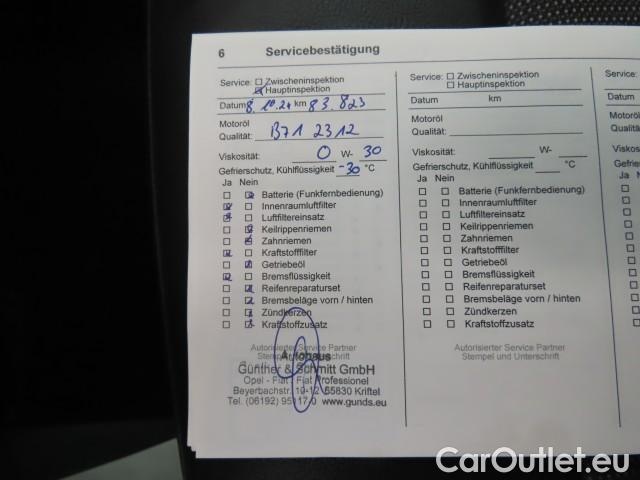 6 Servicebestätigung
Service: Zwischeninspektion
Hauptinspektion
Datum 8.10.24 km 83.823
Motoröl
Qualität: B71 2312
Viskosität: 0 W- 30
Gefrierschutz, Kühlflüssigkeit -30 °C
Ja Nein
Batterie (Funkfernbedienung)
Innenraumluftfilter
Luftfiltereinsatz
Keilrippenriemen
Zahnriemen
Kraftstofffilter
Getriebeöl
Bremsflüssigkeit
Reifenreparaturset
Bremsbeläge vorn / hinten
Zündkerzen
Kraftstoffzusatz
Autorisierter Service Partner
Stempel und Unterschrift
Autohaus
Günther & Schmitt GmbH
Opel - Fiat - Fiat Professional
Beyerbachstr. 10-12 65830 Kriftel
Tel. (06192) 95 17-0 www.gunds.eu
Service: Zwischeninspektion
Hauptinspektion
Datum km
Motoröl
Qualität:
Viskosität: W-
Gefrierschutz, Kühlflüssigkeit °C
Ja Nein
Batterie (Funkfernbedienung)
Innenraumluftfilter
Luftfiltereinsatz
Keilrippenriemen
Zahnriemen
Kraftstofffilter
Getriebeöl
Bremsflüssigkeit
Reifenreparaturset
Bremsbeläge vorn / hinten
Zündkerzen
Kraftstoffzusatz
Autorisierter Service Partner
Stempel und Unterschrift
Service:
Datum
Motoröl
Qualität:
Ja
CarOutlet.eu